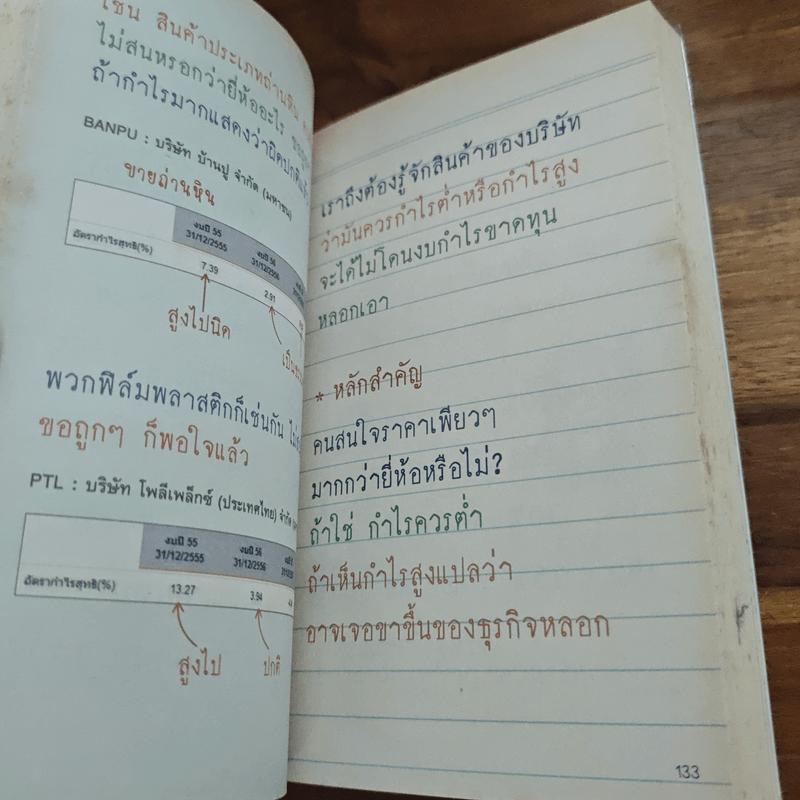 เช่น สินค้าประเภทถ่านหิน
ไม่สนหรอกว่ายี่ห้ออะไร
ถ้ากำไรมากแสดงว่าผิดปกติ
BANPU : บริษัท บ้านปู จำกัด (มหาชน)
ขายถ่านหิน
งบปี 55 งบปี 56
31/12/2555 31/12/2556
อัตรากำไรสุทธิ(%) 7.39 2.91
สูงไปนิด
พวกฟิล์มพลาสติกก็เช่นกัน
ขอถูกๆ ก็พอใจแล้ว
PTL : บริษัท โพลีเพล็กซ์ (ประเทศไทย) จำกัด
งบปี 55 งบปี 56
31/12/2555 31/12/2556
อัตรากำไรสุทธิ(%) 13.27 3.94
สูงไป ปกติ
เราถึงต้องรู้จักสินค้าของบริษัท
ว่ามันควรกำไรต่ำหรือกำไรสูง
จะได้ไม่โดนงบกำไรขาดทุน
หลอกเอา
* หลักสำคัญ
คนสนใจราคาเพียวๆ
มากกว่ายี่ห้อหรือไม่?
ถ้าใช่ กำไรควรต่ำ
ถ้าเห็นกำไรสูงแปลว่า
อาจเจอขาขึ้นของธุรกิจหลอก
133